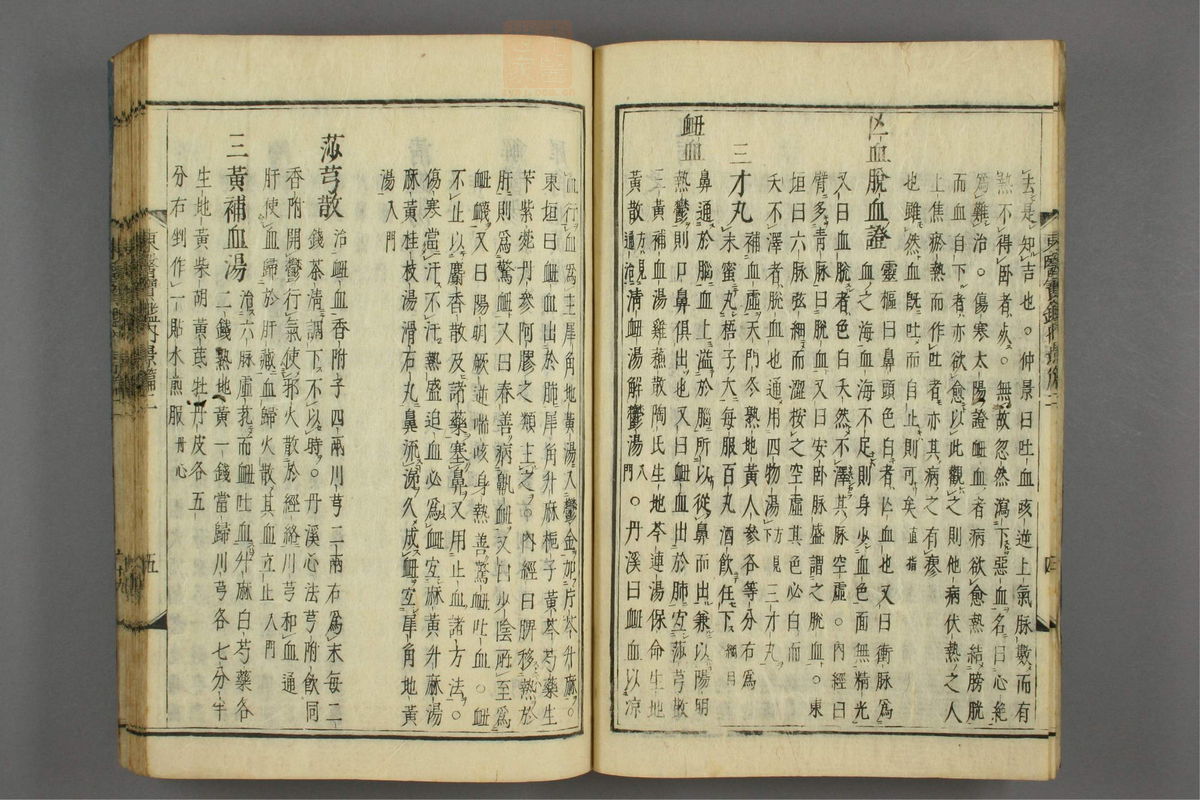 去是知吉也。仲景曰吐血咳逆上氣脉數而有
熱不得臥者死。無故忽然瀉下惡血名曰心絶
爲難治。傷寒太陽證衄血者病欲愈熱結膀胱
而血自下者亦欲愈以此觀之則他病伏熱之人
上焦瘀熱而作吐者亦其病之有瘳
也雖然血旣吐而自止則可矣直指
亡血脫血證
靈樞曰鼻頭色白者亡血也又曰衝脉爲
血之海血海不足則身少血色面無精光
又曰血脫者色白夭然不澤其脉空虛。內經曰
臂多靑脉曰脫血又曰安卧脉盛謂之脫血。東
垣曰六脉弦細而澀按之空虛其色必白而
夭不澤者脫血也通用四物湯方見三才丸
三才丸
補血虛天門冬熟地黃人參各等分右爲
末蜜丸梧子大每服百丸酒飮任下綱目
衄血
鼻通於腦血上溢於腦所以從鼻而出兼以陽明
熱鬱則口鼻俱出也又曰衄血出於肺宜莎芎散
三黃補血湯雞蘇散陶氏生地芩連湯保命生地
黃散方見通治淸衄湯解鬱湯入門。丹溪曰衄血以凉
血行血爲主犀角地黃湯入鬱金如片芩升麻。
東垣曰衄血出於肺犀角升麻梔子黃芩芍藥生
苄紫菀丹參阿膠之類主之。內經曰脾移熱於
肝則爲驚衄又曰春善病鼽衄又曰少陰所至爲
衄衊又曰陽明厥逆喘咳身熱善驚衄吐血。衄
不止以麝香散及諸藥塞鼻又用止血諸方法。
傷寒當汗不汗熱盛迫血必爲衄宜麻黃升麻湯
麻黃桂枝湯滑石丸鼻流久成衄宜犀角地黃
湯入門
莎芎散
治衄血香附子四兩川芎二兩右爲末每二
錢茶淸調下不以時。丹溪心法芎附飮同
香附開鬱行氣使邪火散於經絡川芎和血通
肝使血歸於肝藏血歸火散其血立止入門
三黃補血湯
治六脉虛芤而衄吐血升麻白芍藥各
二錢熟地黃一錢當歸川芎各七分半
生地黃柴胡黃芪牡丹皮各五
分右剉作一貼水煎服丹心
東醫寶鑑內景篇二
五
東醫寶鑑內景篇二
四